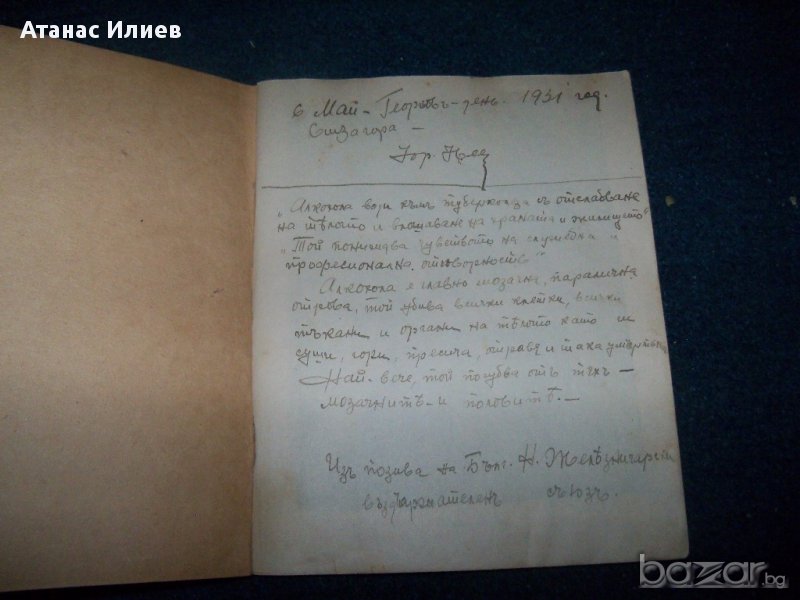 Атанас Илиев
6 Май - Георгьовъ - день. 1931 год.
Ст. Загора -
Йор.
"Алкохола води къмъ туберколоза съ отслабване
на тѣлото и влошаване на храната и жилището"
"Той понижава чувството на служебна и
професионална отговорность"
Алкохола е главно мозачна, паралична
отрова, той убива всички клетки, всички
тъкани и органи на тѣлото като ги
суши, гори, пресича, отравя и така умъртвява.
Най-вече, той погубва отъ тѣхъ -
мозачнитѣ - и половитѣ. -
Изъ позива на Бълг. Н. Желѣзничарски
въздържателенъ съюзъ.
bazar.bg